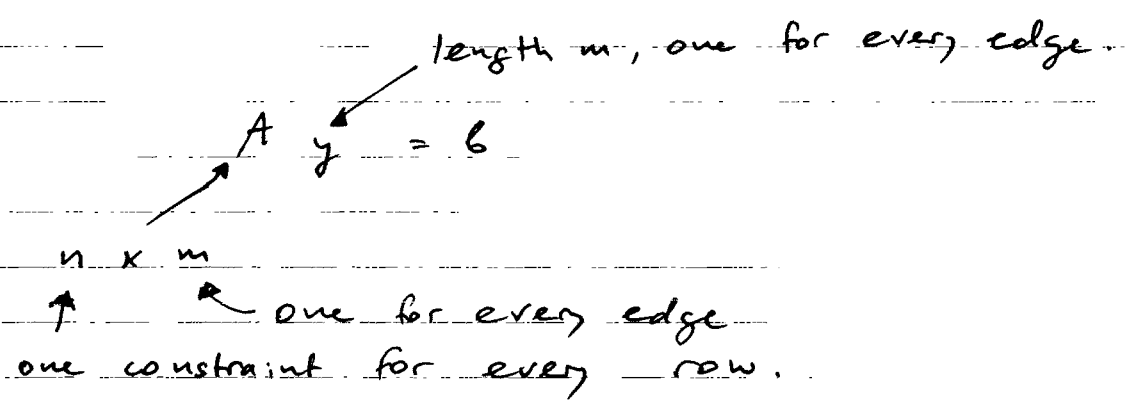 length m, one for every edge.
A y = b
n x m
one for every edge
one constraint for every row.